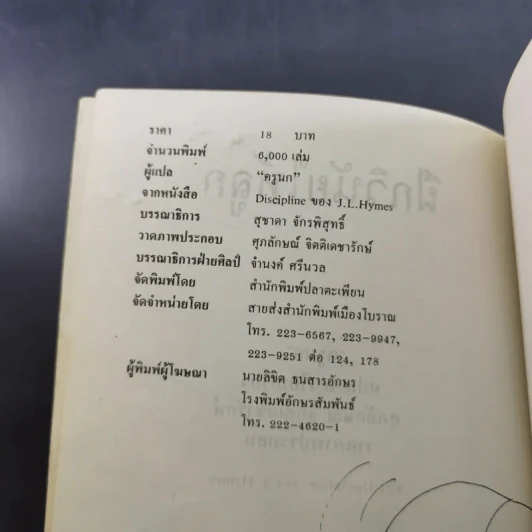 ราคา 18 บาท
จำนวนพิมพ์ 6,000 เล่ม
ผู้แปล "ครูนก"
จากหนังสือ Discipline ของ J.L.Hymes
บรรณาธิการ สุชาดา จักรพิสุทธิ์
วาดภาพประกอบ ศุภลักษณ์ จิตติเดชารักษ์
บรรณาธิการฝ่ายศิลป์ จำนงค์ ศรีนวล
จัดพิมพ์โดย สำนักพิมพ์ปลาตะเพียน
จัดจำหน่ายโดย สายส่งสำนักพิมพ์เมืองโบราณ
โทร. 223-6567, 223-9947,
223-9251 ต่อ 124, 178
ผู้พิมพ์ผู้โฆษณา นายลิขิต ธนสารอักษร
โรงพิมพ์อักษรสัมพันธ์
โทร. 222-4620-1